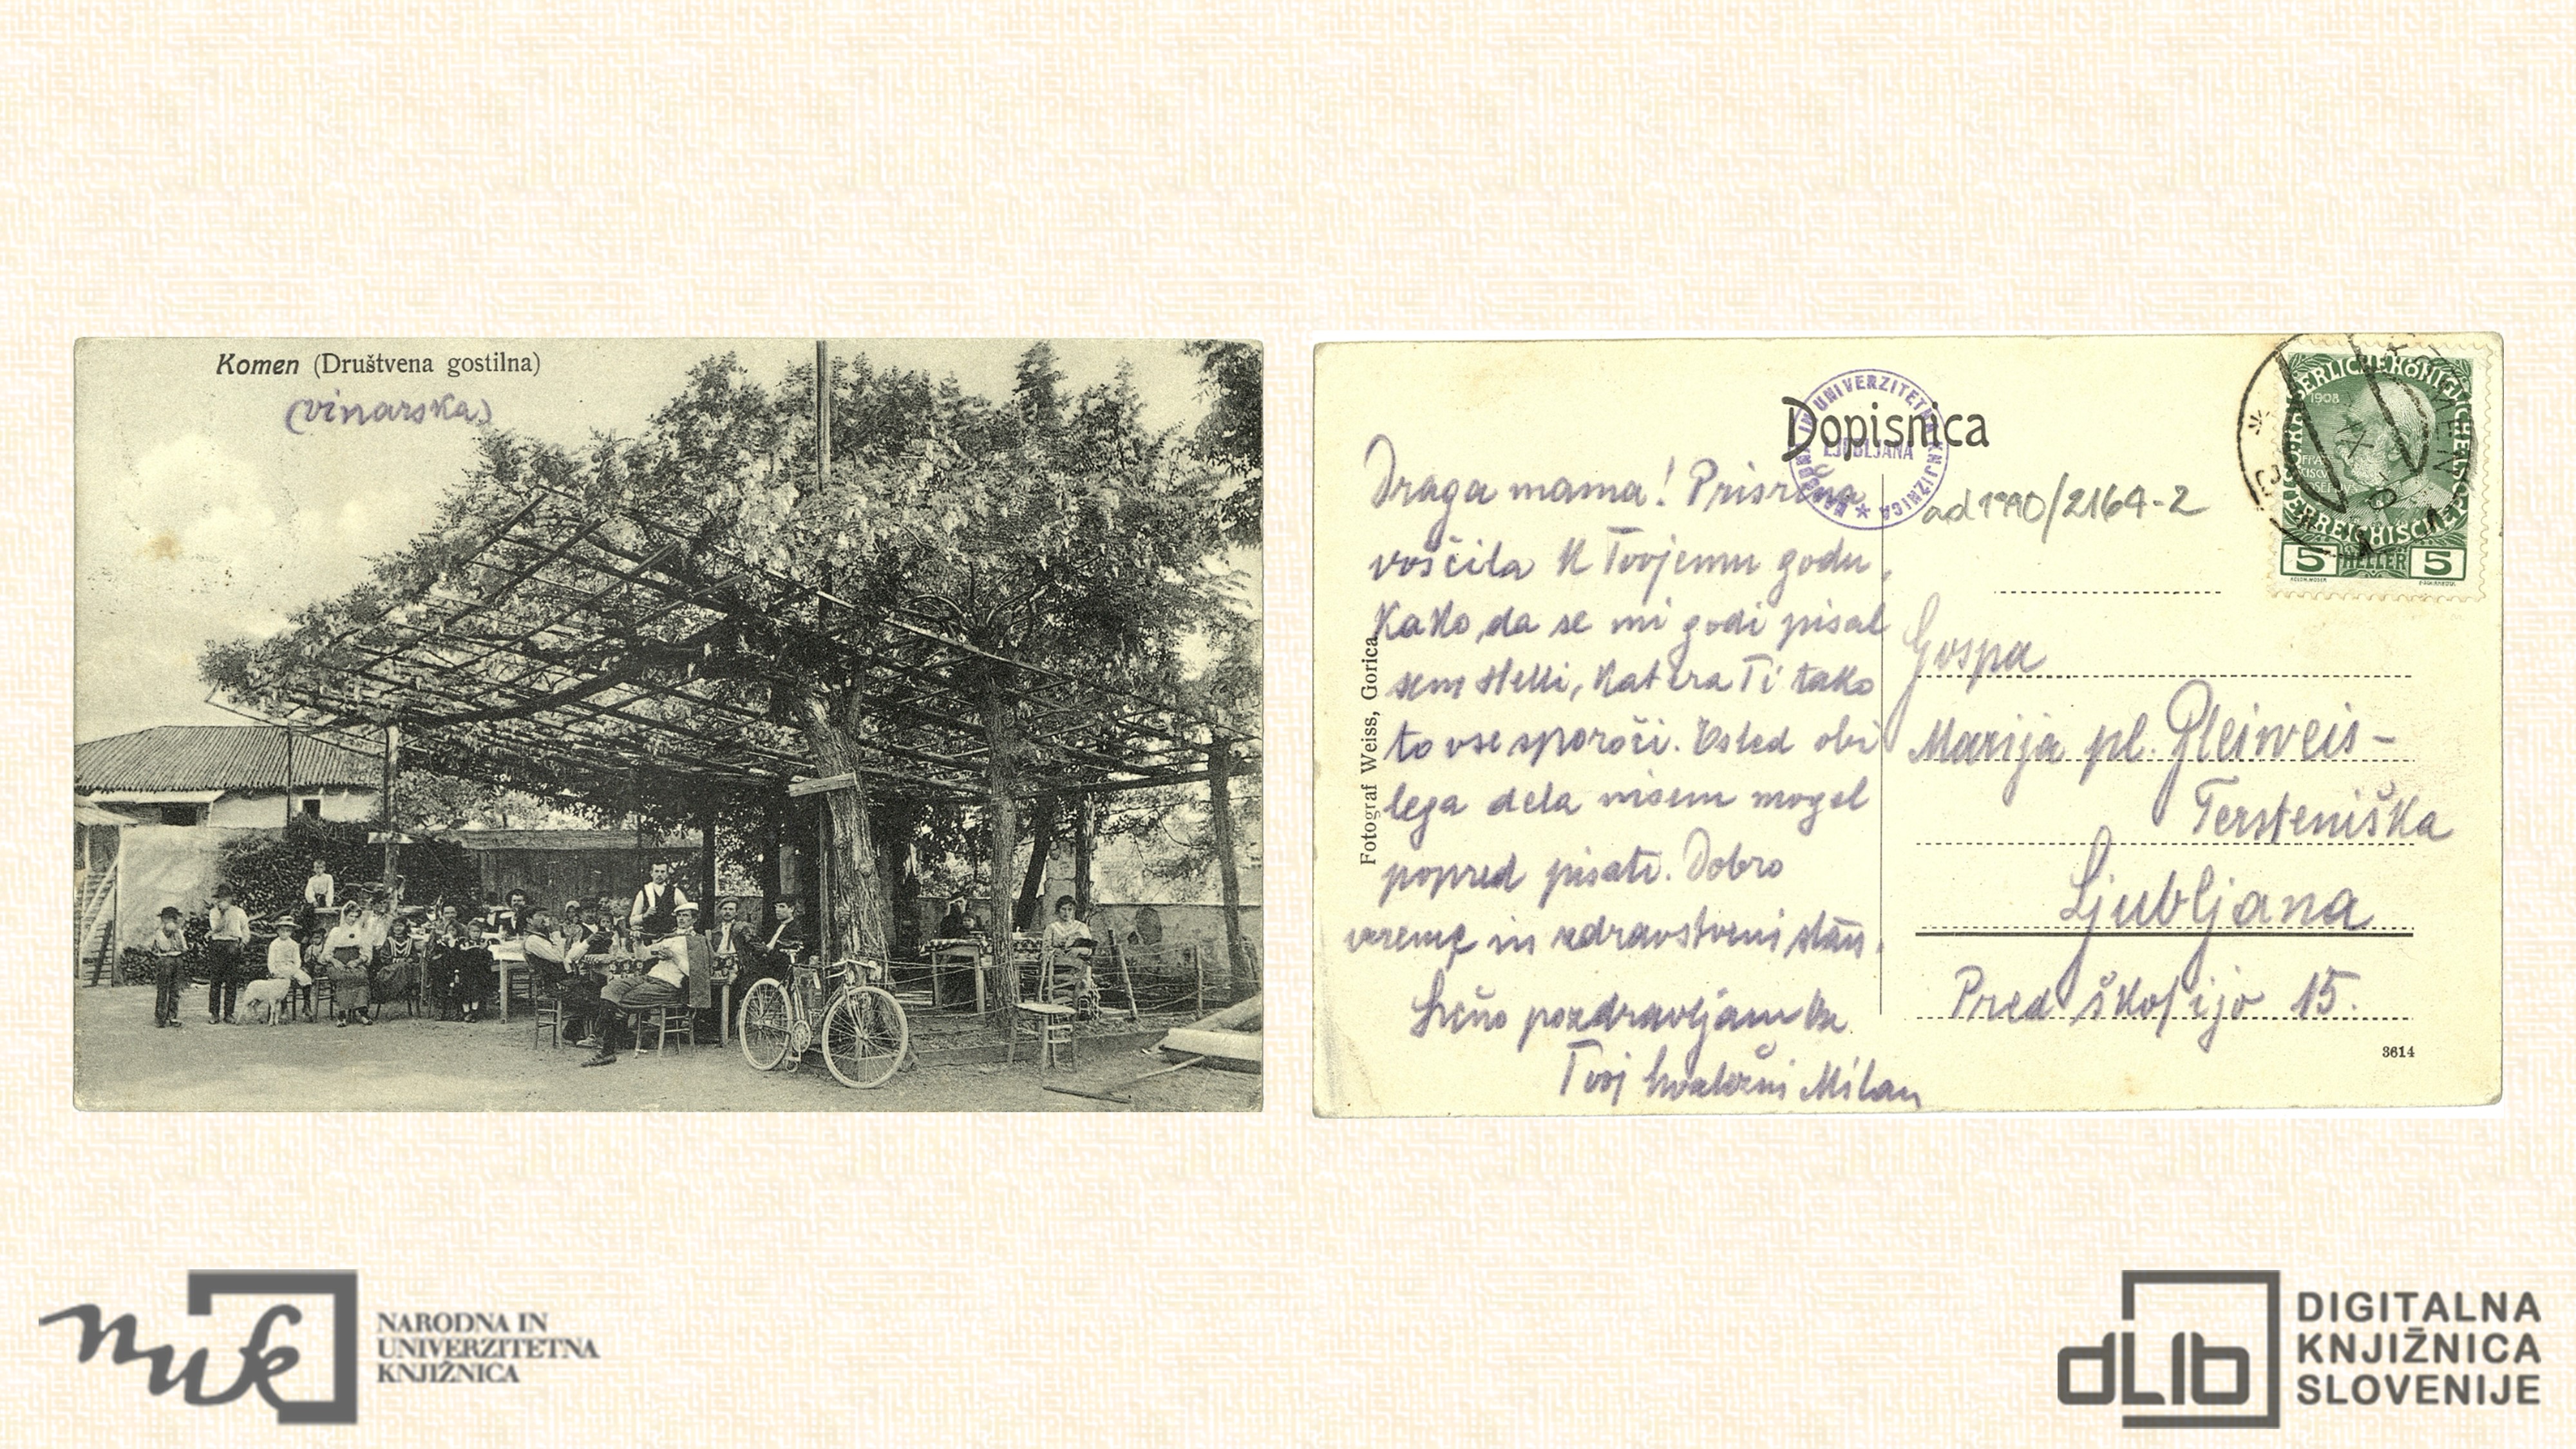 Komen (Društvena gostilna)
(vinarska)
Dopisnica
NARODNA IN UNIVERZITETNA KNJIŽNICA
LJUBLJANA
Draga mama! Prisrčna
voščila k Tvojemu godu.
Kako, da se mi godi pisal
sem Helli, katera Ti tako
to vse sporoči. Vsled obi
lega dela nisem mogel
popred pisati. Dobro
vreme in zdravstveni stan.
Srčno pozdravljam
Tvoj hvaležni Milan
Fotograf Weiss, Gorica
ad 1990/2164-2
KAISERLICHE KÖNIGLICHE
ÖSTERREICHISCHE POST
1908
5 HELLER 5
KOMEN
Gospa
Marija pl. Bleiweis-
Tersteniška
Ljubljana
Pred škofijo 15.
3614
nuk
NARODNA IN
UNIVERZITETNA
KNJIŽNICA
dLib
DIGITALNA
KNJIŽNICA
SLOVENIJE